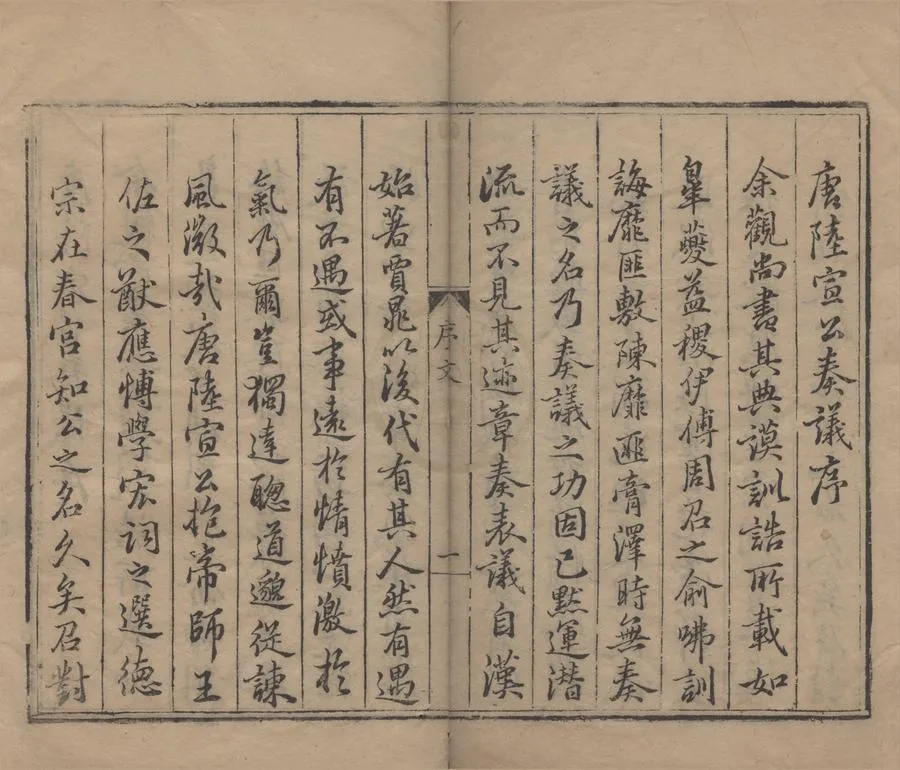 唐陸宣公奏議序
余觀尚書其典謨訓誥所載如
臯夔益稷伊傅周召之俞咈訓
誨靡匪敷陳靡匪膏澤時無奏
議之名乃奏議之功固已默運潛
流而不見其迹章奏表議自漢
序文
一
始著賈晁以後代有其人然有遇
有不遇或事遠於情憤激於
氣乃爾豈獨達聰道邈從諫
風微哉唐陸宣公抱帝師王
佐之猷應博學宏詞之選德
宗在春宮知公之名久矣召對